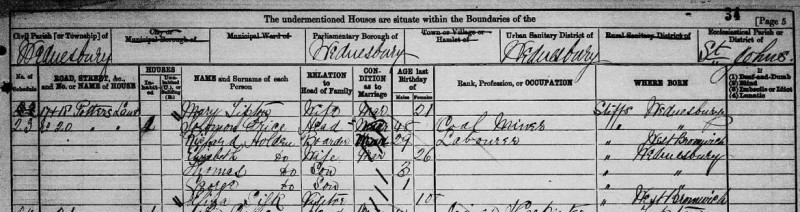 The undermentioned Houses are situate within the Boundaries of the
34 [Page 5
Civil Parish [or Township] of
City or Municipal Borough of
Municipal Ward of
Parliamentary Borough of
Town or Village or Hamlet of
Urban Sanitary District of
Rural Sanitary District of
Ecclesiastical Parish or District of
Wednesbury
Wednesbury
Wednesbury
St Johns
No. of Schedule
ROAD, STREET, &c., and No. or NAME of HOUSE
HOUSES
Inhabited
Uninhabited (U.), or Building (B.)
NAME and Surname of each Person
RELATION to Head of Family
CONDITION as to Marriage
AGE last Birthday of
Males
Females
Rank, Profession, or OCCUPATION
WHERE BORN
(1) Deaf-and-Dumb
(2) Blind
(3) Imbecile or Idiot
(4) Lunatic
22 Potters Lane Mary Tipton Wife Mar 21 Staffs Wednesbury
23 20 " " 1 Solomon Price Head 45 Coal Miner " "
Holden Boarder 29 Labourer " West Bromwich
Elizabeth Do Wife Mar 26 " Wednesbury
Thomas Do Son 3 " "
George Do Son 1 " "
Eliza Silk Visitor " West Bromwich